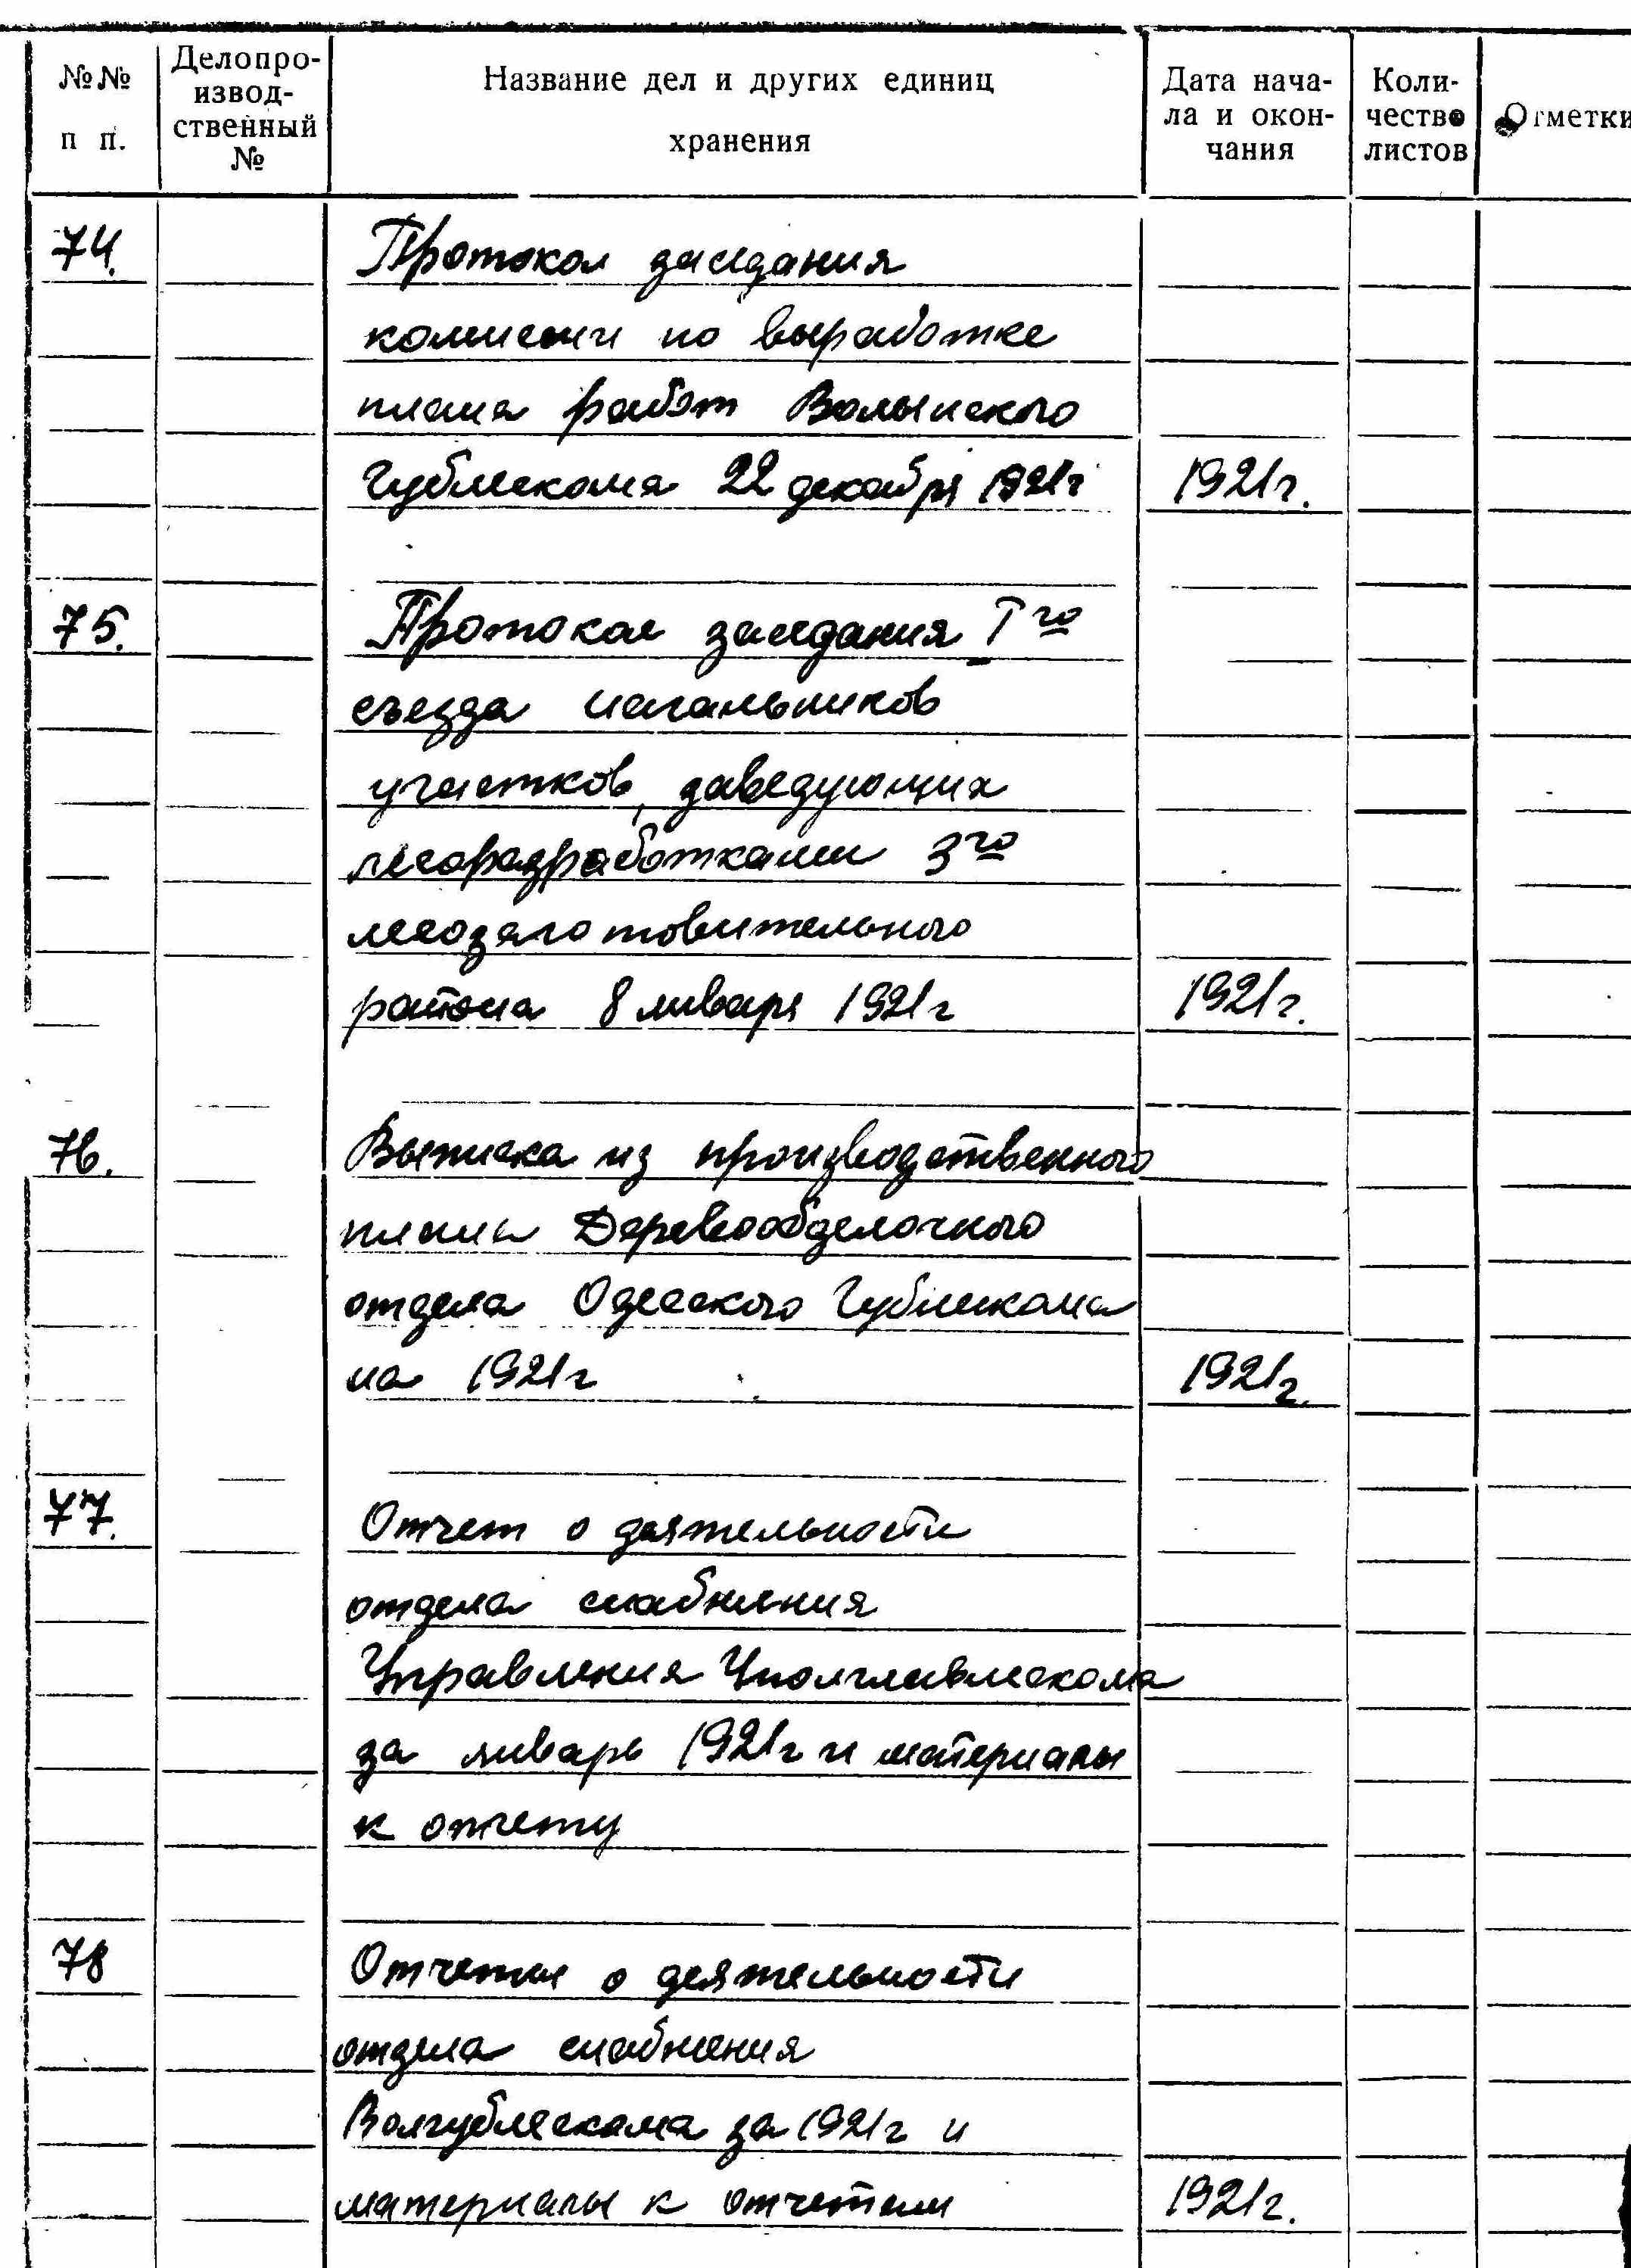 №№ п п.
Делопро-
извод-
ственный
№
Название дел и других единиц
хранения
Дата нача-
ла и окон-
чания
Коли-
чество
листов
Отметки
74. Протокол заседания
комиссии по выработке
плана работ Волынского
Гублескома 22 декабря 1921г 1921г.
75. Протокол заседания I го
съезда начальников
участков, заведующих
лесоразработками 3го
лесозаготовительного
района 8 января 1921г 1921г.
76. Выписка из производственного
плана Деревообделочного
отдела Одесского Гублескома
на 1921г 1921г.
77. Отчет о деятельности
отдела снабжения
Управления Уполглавлескома
за январь 1921г и материалы
к отчету
78 Отчеты о деятельности
отдела снабжения
Волгублескома за 1921г и
материалы к отчетам 1921г.